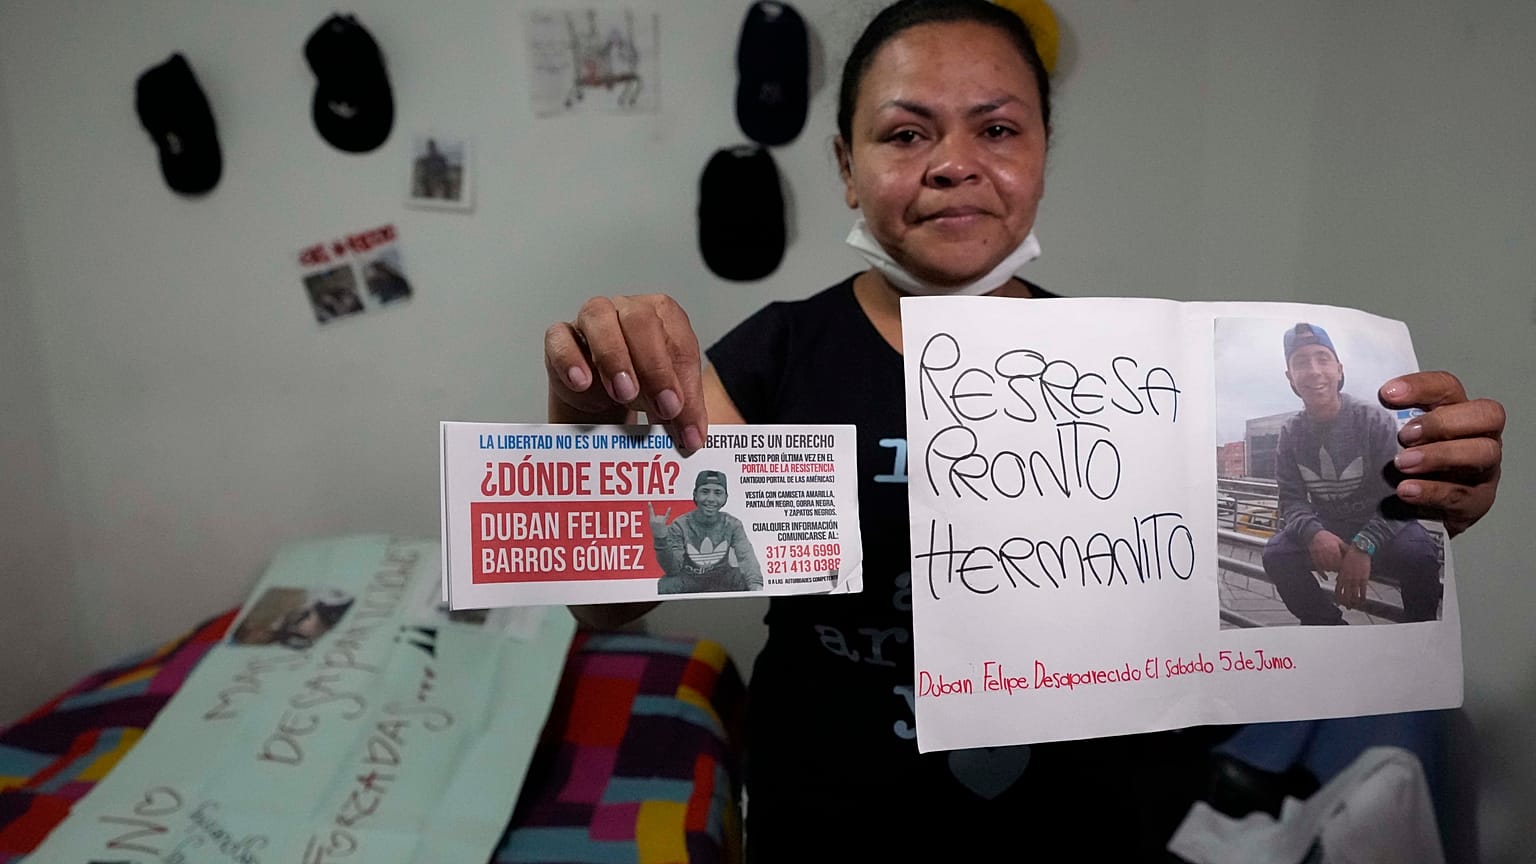 LA LIBERTAD NO ES UN PRIVILEGIO
LIBERTAD ES UN DERECHO
¿DÓNDE ESTÁ?
DUBAN FELIPE
BARROS GÓMEZ
FUE VISTO POR ÚLTIMA VEZ EN EL
PORTAL DE LA RESISTENCIA
(ANTIGUO PORTAL DE LAS AMÉRICAS)
VESTÍA CON CAMISETA AMARILLA,
PANTALÓN NEGRO, GORRA NEGRA,
Y ZAPATOS NEGROS.
CUALQUIER INFORMACIÓN
COMUNICARSE AL:
317 534 6990
321 413 0388
O A LAS AUTORIDADES
adidas
REGRESA
PRONTO
HERMANITO
Duban Felipe Desaparecido El Sabado 5 de Junio.
NO
MAS
DESAPARICIONES
FORZADAS...